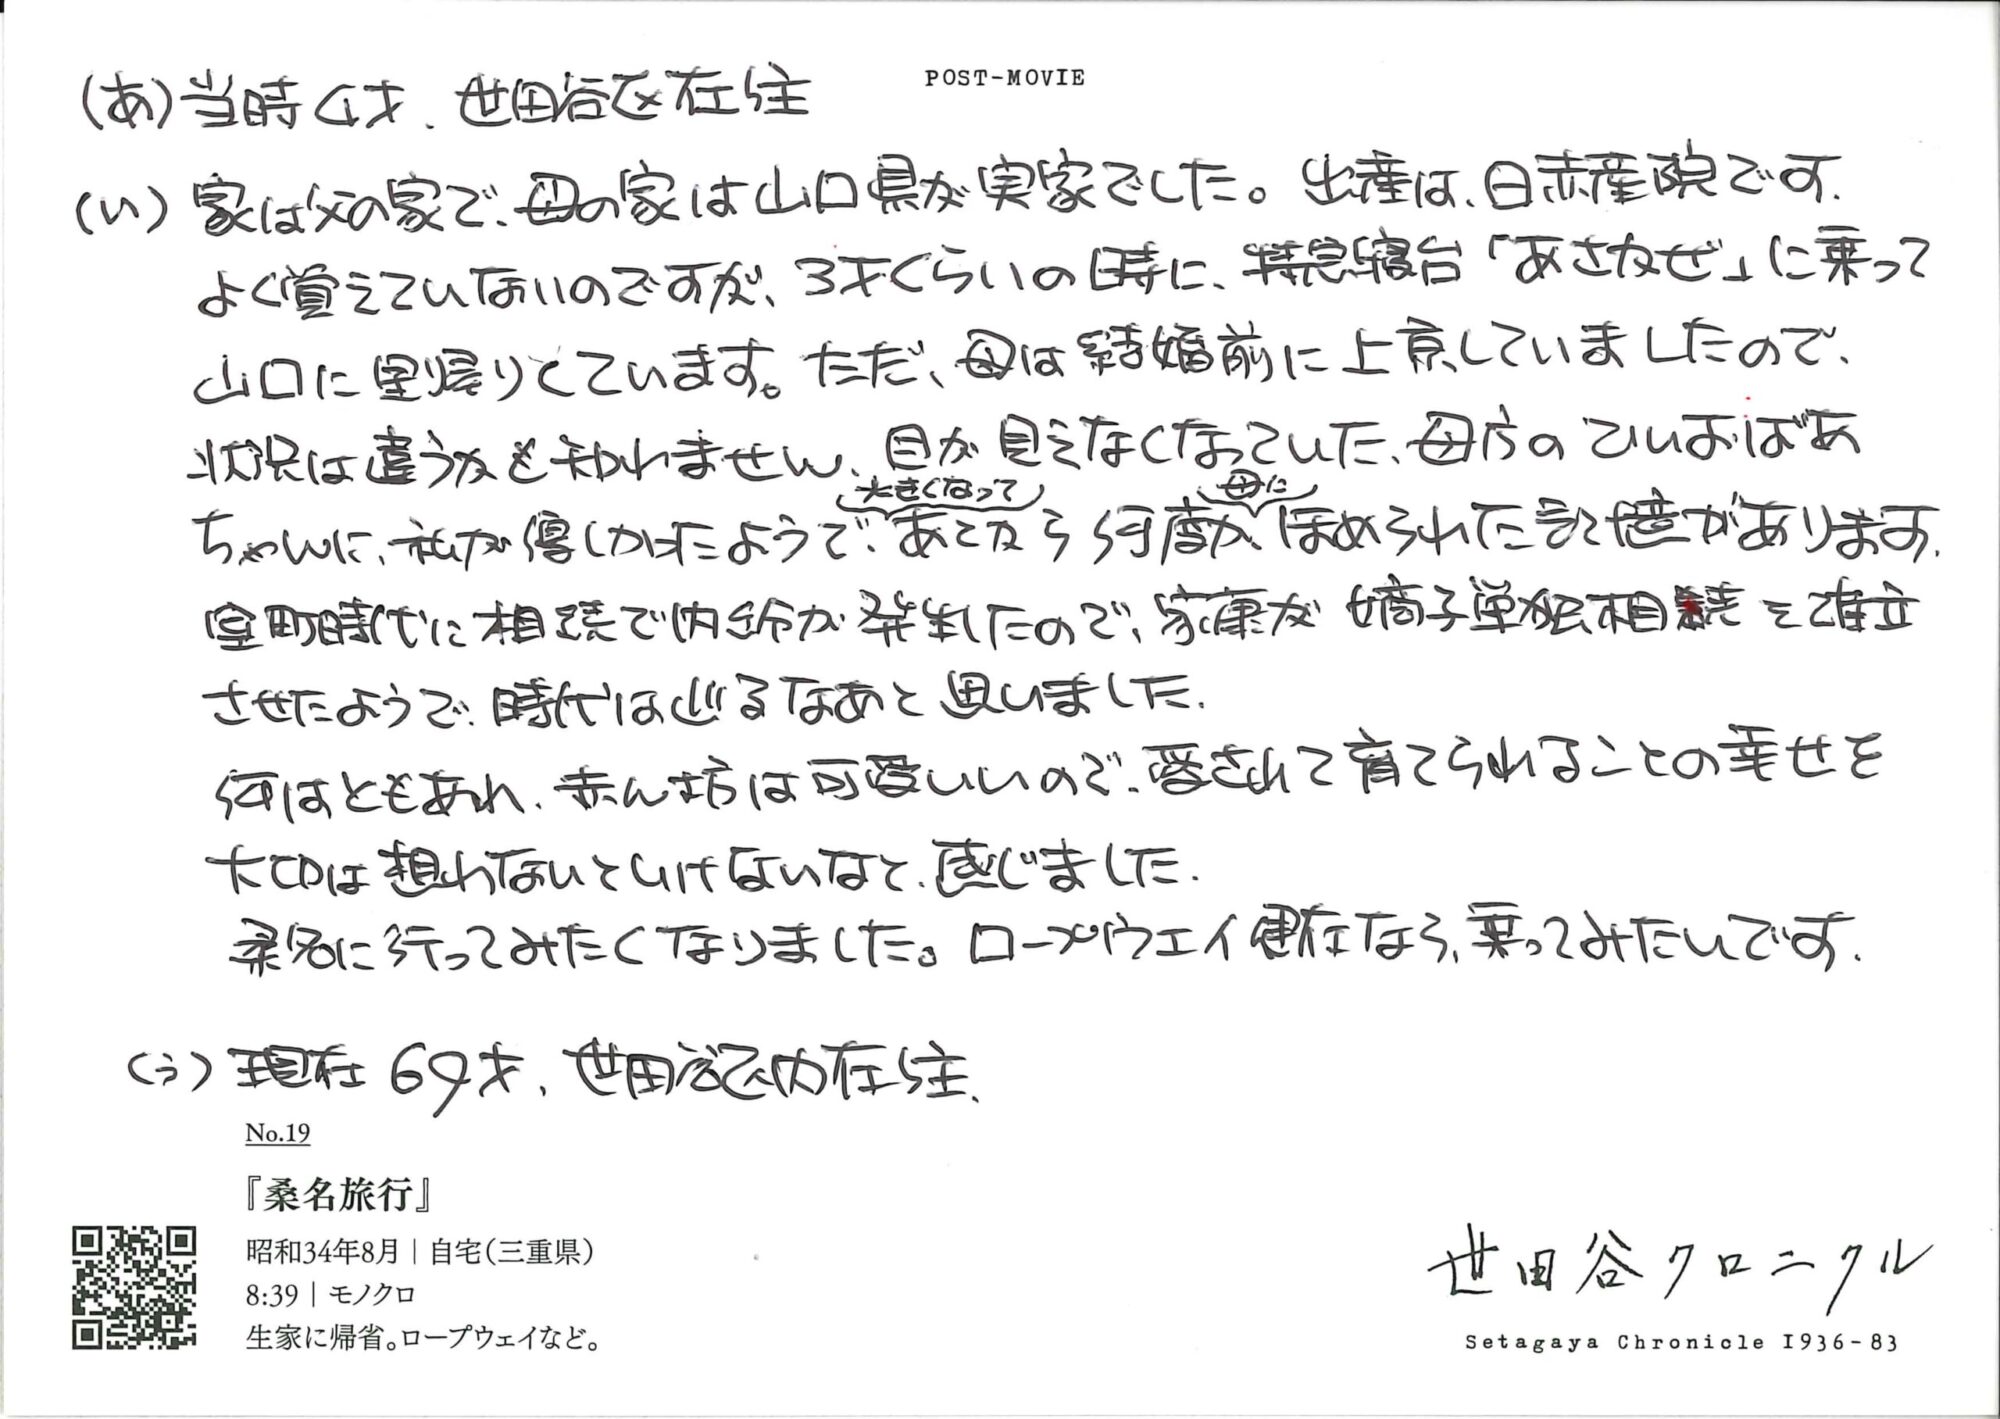 POST-MOVIE
(あ)当時4才、世田谷区在住
(い)家は父の家で、母の家は山口県が実家でした。出産は、日赤産院です。
よく覚えていないのですが、3才くらいの時に、特急寝台「あさかぜ」に乗って
山口に里帰りしています。ただ、母は結婚前に上京していましたので、
状況は違うかも知れません、目が見えなくなっていた、母方のひいおばあ
大きくなって 母に
ちゃんに、私が優しかったようで、あとから何度か、ほめられた記憶があります。
室町時代に相続で内紛が発生したので、家康が嫡子単独相続を確立
させたようで、時代は巡るなあと思いました。
何はともあれ、赤ん坊は可愛いいので、愛されて育てられることの幸せを
大切は想わないといけないなと、感じました。
桑名に行ってみたくなりました。ロープウェイ健在なら、乗ってみたいです。
(う)現在69才、世田谷区内在住、
No.19
『桑名旅行』
昭和34年8月｜自宅(三重県)
8:39｜モノクロ
生家に帰省。ロープウェイなど。
世田谷クロニクル
Setagaya Chronicle 1936-83